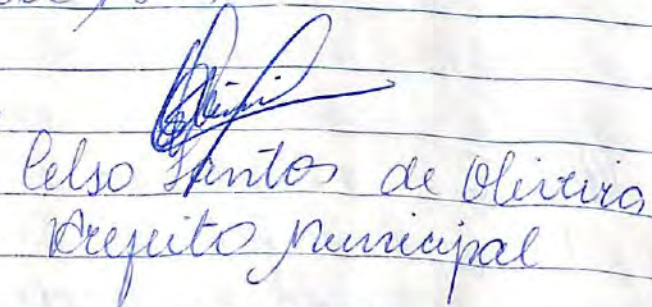 Celso Santos de Oliveira
Prefeito Municipal